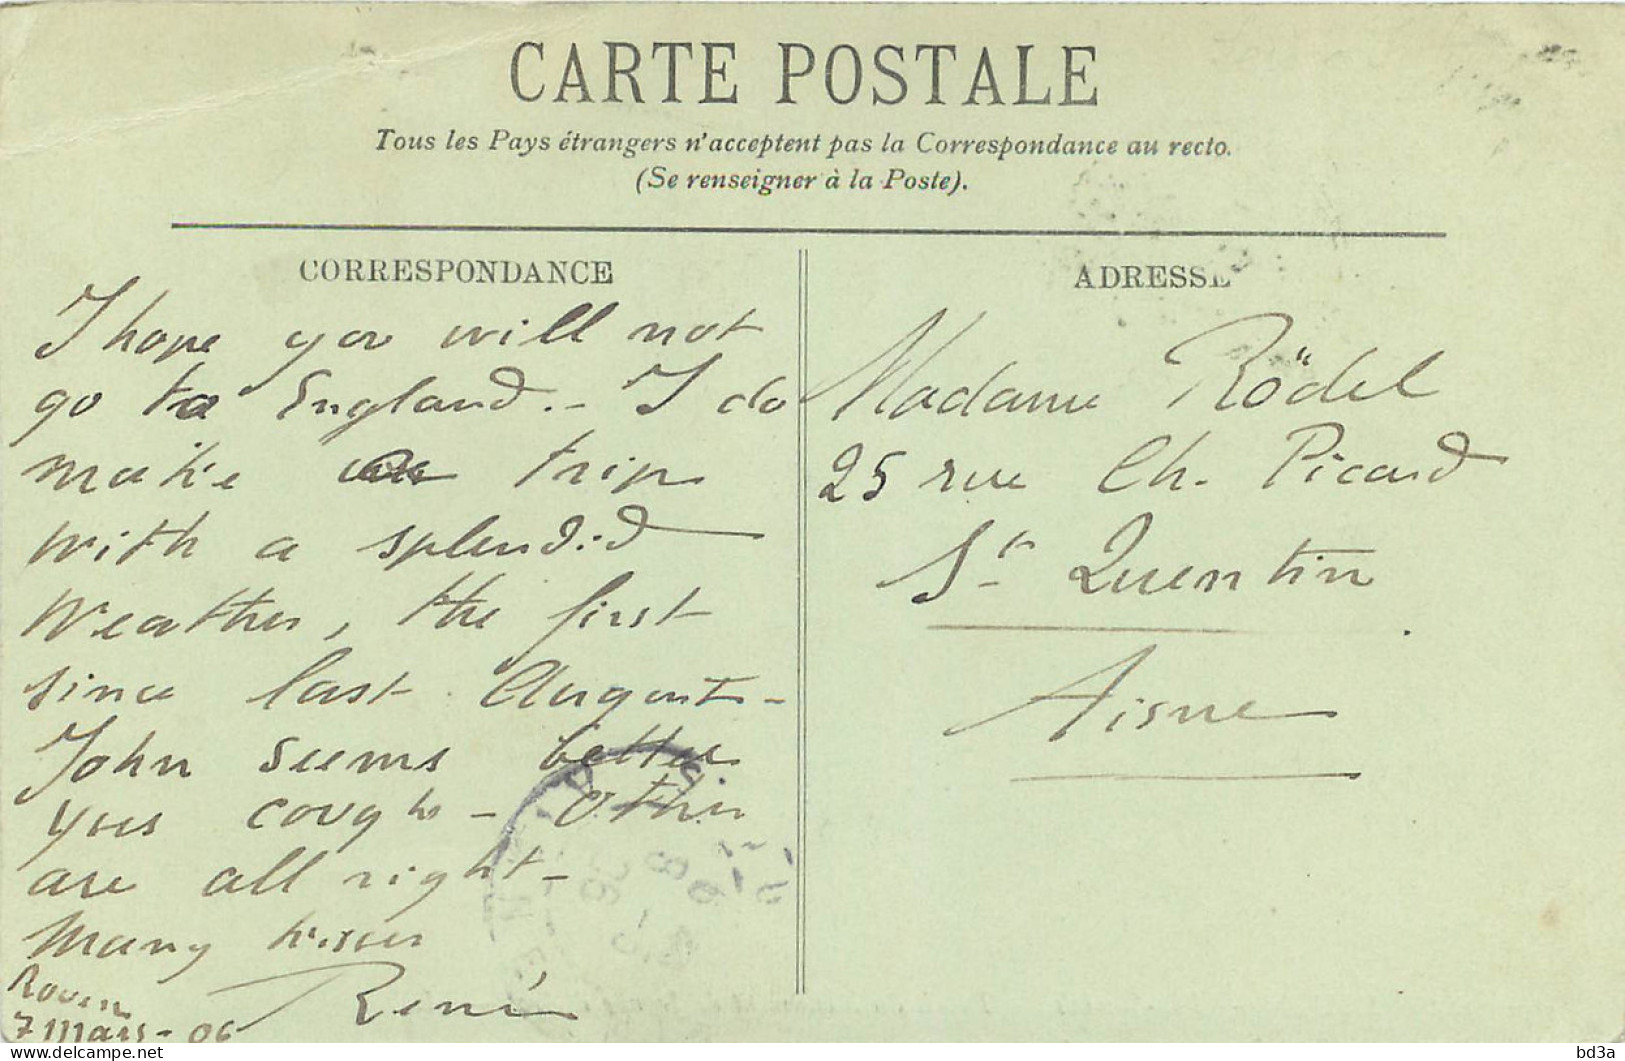 CARTE POSTALE
Tous les Pays étrangers n'acceptent pas la Correspondance au recto.
(Se renseigner à la Poste).
CORRESPONDANCE
I hope you will not
go to England. - I do
make a trip
with a splendid
weather, the first
since last August -
John seems better
yues cough - Other
are all right -
Many kisses
René
Rouen
7 Mars - 06
ADRESSE
Madame Rödel
25 rue Ch. Picard
St Quentin
Aisne
delcampe.net
bd3a